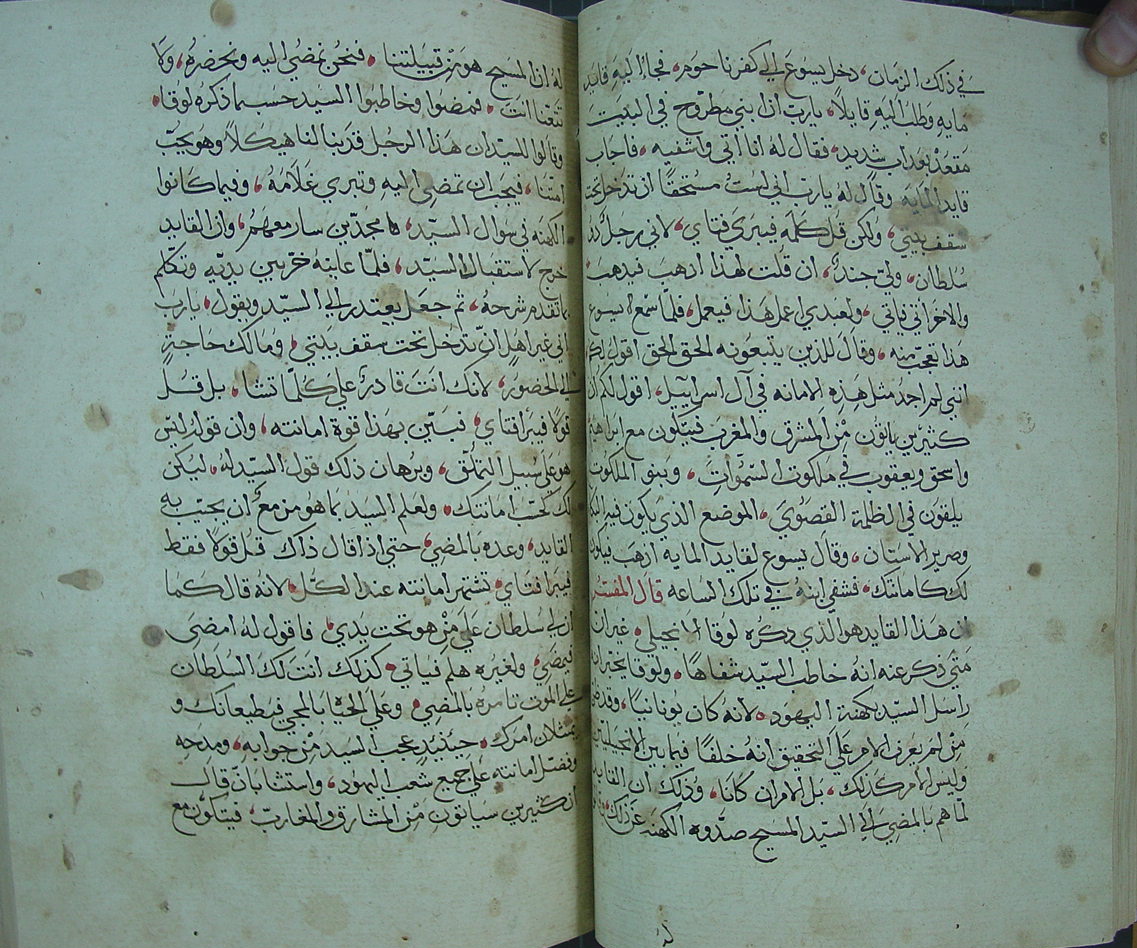 في ذلك الزمان، دخل يسوع الي كفرناحوم، فجا اليه قايد
مايه وطلب اليه قايلاً، يارب ان ابني مطروح في البيت
مقعد بعداب شديد، فقال له انا اتي واشفيه، فاجاب
قايد المايه وقال له يارب اني لست مستحقاً ان تدخل تحت
سقف بيتي، ولكن قل كلمه فيبري فتاي، لاني رجل ذو
سلطان، ولي جند، ان قلت لهذا ادهب فيدهب
والاخر اتي فياتي، ولعبدي اعمل هذا فيعمل، فلما سمع يسوع
هذا تعجب منه، وقال للذين يتبعونه الحق الحق اقول لكم
انني لم اجد مثل هذه الامانه في آل اسراييل، اقول لكم ان
كثيرين ياتون من المشرق والمغرب فيتكون مع ابراهيم
واسحق ويعقوب في ملكوت السموات، وبنو الملكوت
يلقون في الظلمة القصوي، الموضع الذي يكون فيه البكا
وصرير الاسنان، وقال يسوع لقايد المايه ادهب فيكون
لك كامانتك، فشفي ابنه في تلك الساعه قال المفسر
ان هذا القايد هو الذي ذكره لوقا الانجيلي، غير ان
متي ذكر عنه انه خاطب السيد شفاها، ولوقا يخبر انه
راسل السيد بكهنة اليهود، لانه كان يونانيا، وقد
من لم يعرف الامر علي التحقيق انه خلفا فيما بين الانجيليين
وليس الامر كذلك، بل الامران كانا، وذلك ان القايد
لما هم بالمضي الي السيد المسيح صدوه الكهنه عن ذلك،
له ان المسيح هو من قبيلتنا، فنحن نمضي اليه ونحضره، ولا
تتعنا انت، فمضوا وخاطبوا السيد حسبما ذكره لوقا،
وقالوا للسيد ان هذا الرجل قد بنا لنا هيكلاً وهو يحب
امتنا، فيجب ان تمضي اليه وتبري غلامه، وفيما كانوا
الكهنه في سوال السيد، مجدين سار معهم، وان القايد
خرج لاستقبال السيد، فلما عاينه خر بين يديه وتكلم
بما تقدم شرحه، ثم جعل يعتدر الي السيد ويقول، يارب
اني غير اهل ان تدخل تحت سقف بيتي، ومالك حاجة
في الحضور، لانك انت قادر علي كلما تشا، بل قل
قولا فيبرا فتاي، فبين بهذا قوة امانته، وان قوله ليس
هو علي سبيل التملق، وبرهان ذلك قول السيد له، ليكن
لك تحت امانتك، ولعلم السيد بما هو مزمع ان يجيب به
القايد، وعده بالمضي، حتي اذا قال ذاك قل قولا فقط
فيبرا فتاي، تشتهر امانته عند الكل، لانه قال كما
ان لي سلطان علي من هو تحت يدي، فاقول له امضي
فيمضي، ولغيره هلم فياتي، كذلك انت لك السلطان
علي الموت تامره بالمضي، وعلي الحياة بالمجي فيطيعانك و
يمتثلان امرك، حينيذٍ عجب السيد من جوابه، ومدحه
وفضل امانته علي جميع شعب اليهود، واستثنا بان قال
ان كثيرين سياتون من المشارق والمغارب، فيتكون مع